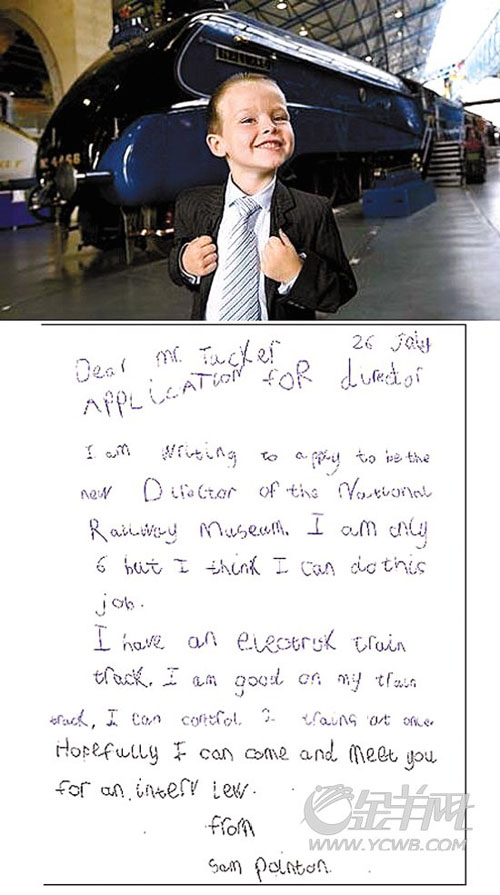 4468
Dear Mr. Tucker 26 July
APPLiCATiON FOR director
I am writing to apply to be the
new Director of the National
Railway Museum. I am only
6 but I think I can do this
job.
I have an electrik train
track. I am good on my train
track, I can control 2 trains at once
Hopefully I can come and meet you
for an interv iew.
from
Sam pointon.
金羊网
WWW.YCWB.COM